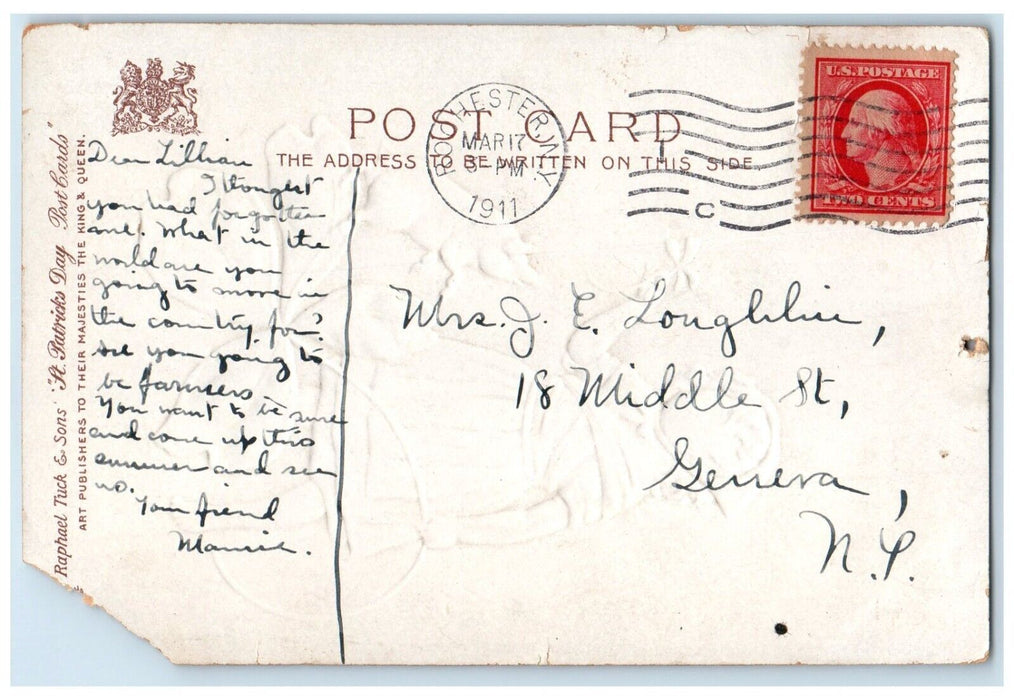 POST CARD
THE ADDRESS TO BE WRITTEN ON THIS SIDE.
Raphael Tuck & Sons' "St. Patrick's Day Post Cards"
ART PUBLISHERS TO THEIR MAJESTIES THE KING & QUEEN.
ROCHESTER, N.Y.
MAR 17
PM
1911
C
U.S. POSTAGE
TWO CENTS
Dear Lillian
I thought
you had forgotten
me. What in the
world are you
going to move in
the country for?
Are you going to
be farmers
You want to be sure
and come up this
summer and see
us.
Your friend
Mrs. J. E. Loughlin,
18 Middle St,
Geneva,
N.Y.